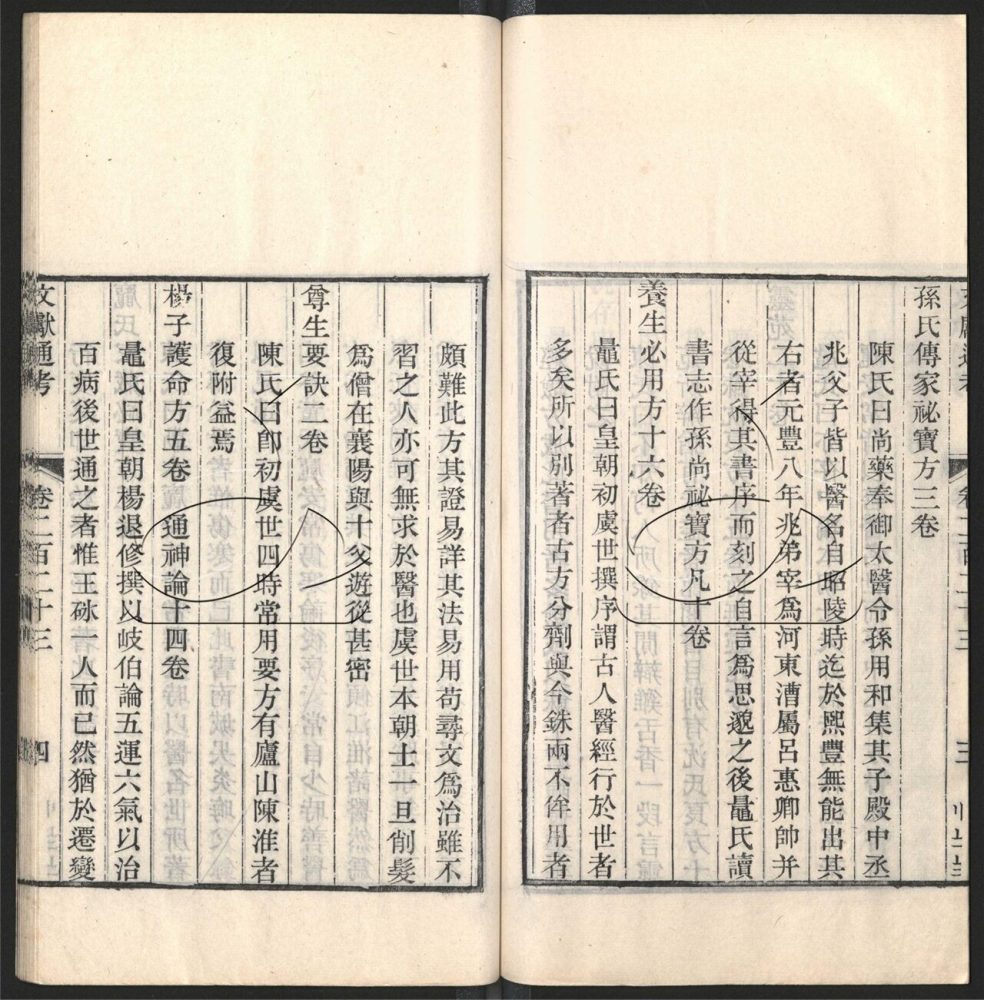 孫氏傳家祕寶方三卷
陳氏曰尚藥奉御太醫令孫用和集其子殿中丞
兆父子皆以醫名自昭陵時迄於熙豐無能出其
右者元豐八年兆弟宰爲河東漕屬呂惠卿帥并
從宰得其書序而刻之自言爲思邈之後鼂氏讀
書志作孫尚祕寶方凡十卷
養生必用方十六卷
鼂氏曰皇朝初虞世撰序謂古人醫經行於世者
多矣所以別著者古方分劑與今銖兩不侔用者
頗難此方其證易詳其法易用苟尋文爲治雖不
習之人亦可無求於醫也虞世本朝士一旦削髮
爲僧在襄陽與十父遊從甚密
尊生要訣二卷
陳氏曰卽初虞世四時常用要方有廬山陳淮者
復附益焉
楊子護命方五卷 通神論十四卷
鼂氏曰皇朝楊退修撰以岐伯論五運六氣以治
百病後世通之者惟王砅一人而已然猶於遷變
文獻通考 卷二百二十三 四